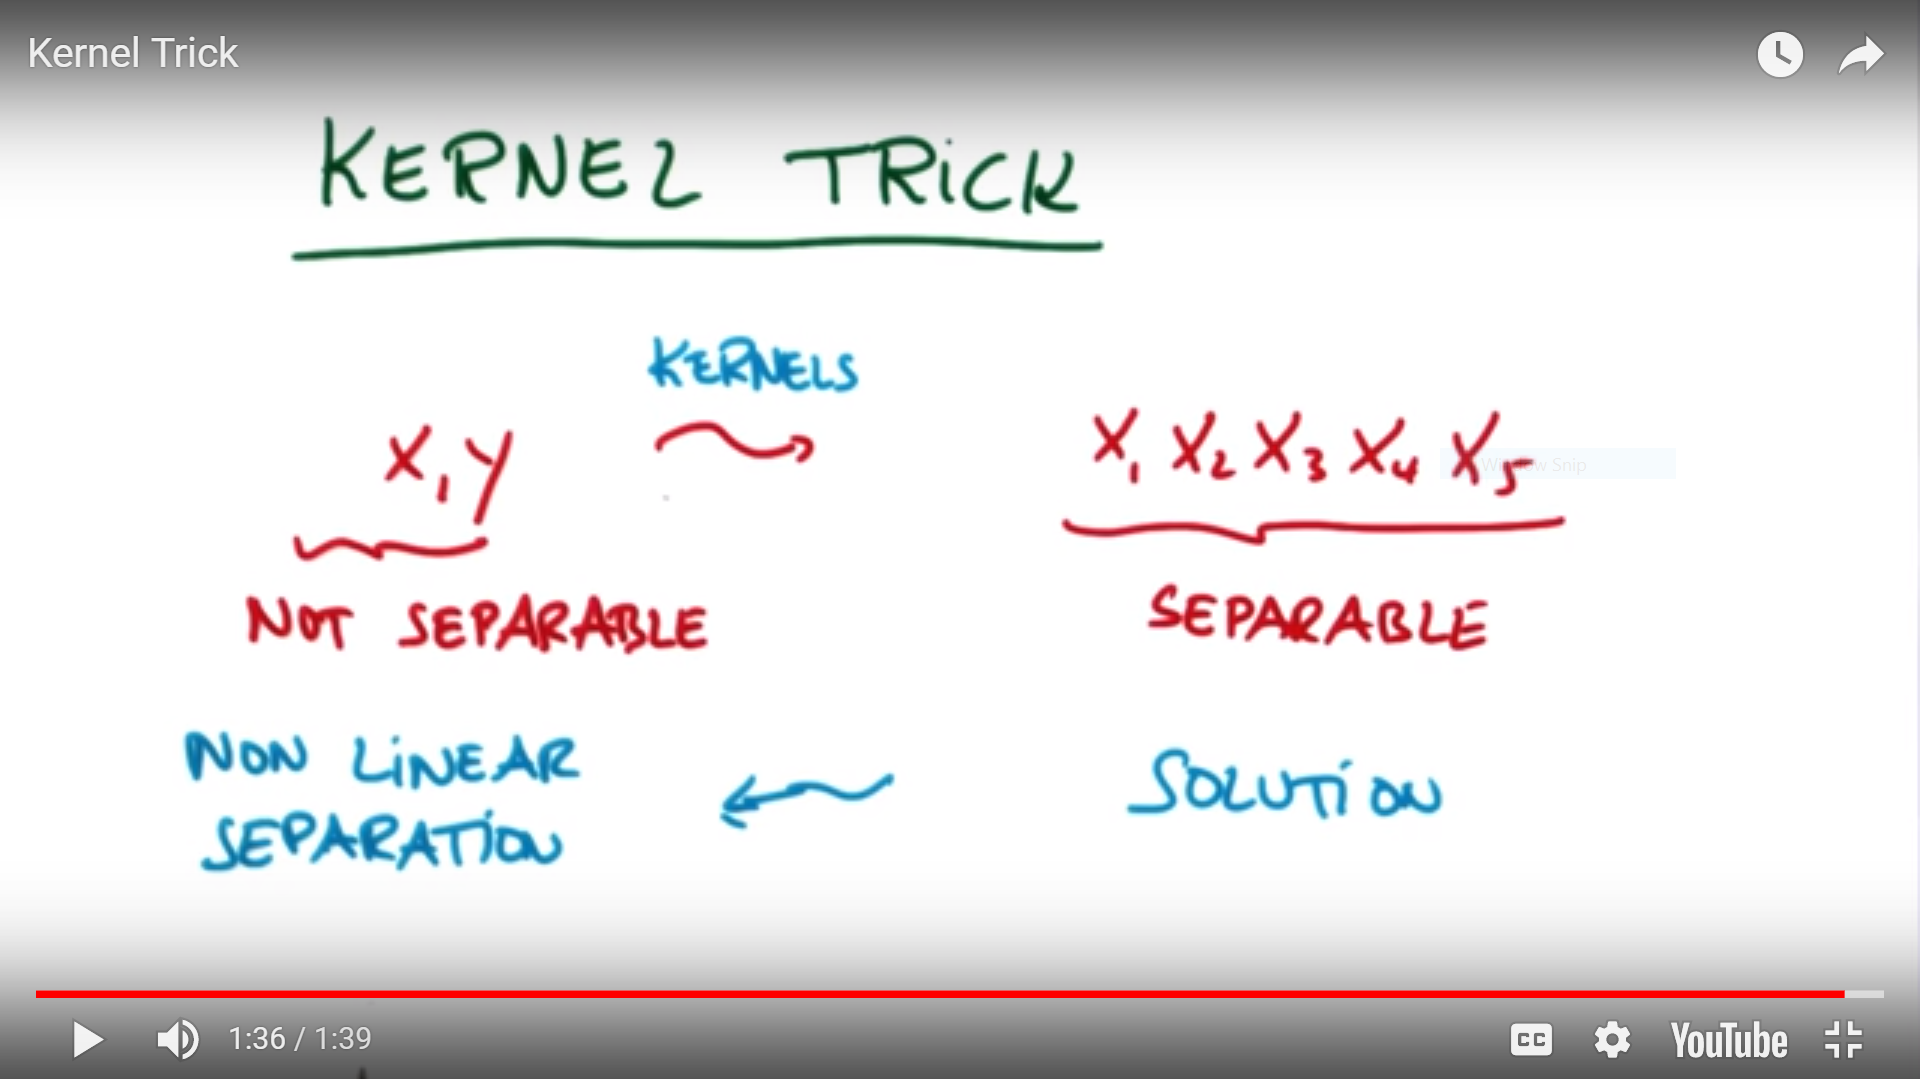 Kernel Trick
KERNEL TRiCK
KERNELS
X, y
X1 X2 X3 X4 X5
Window Snip
NOT SEPARABLE
SEPARABLE
NON LiNEAR
SEPARATiON
SOLUTiON
1:36 / 1:39
CC
YouTube